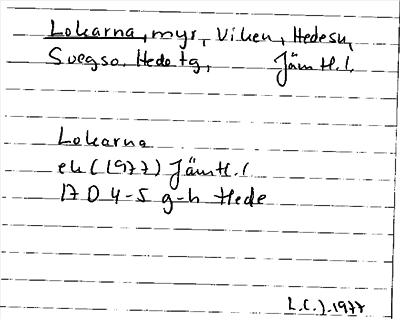 Lokarna, myr, Viken, Hedesn,
Svegs o. Hede tg, Jämtl. l.
Lokarna
ek (1977) Jämtl. l
17 D 4-5 g-h Hede
1977